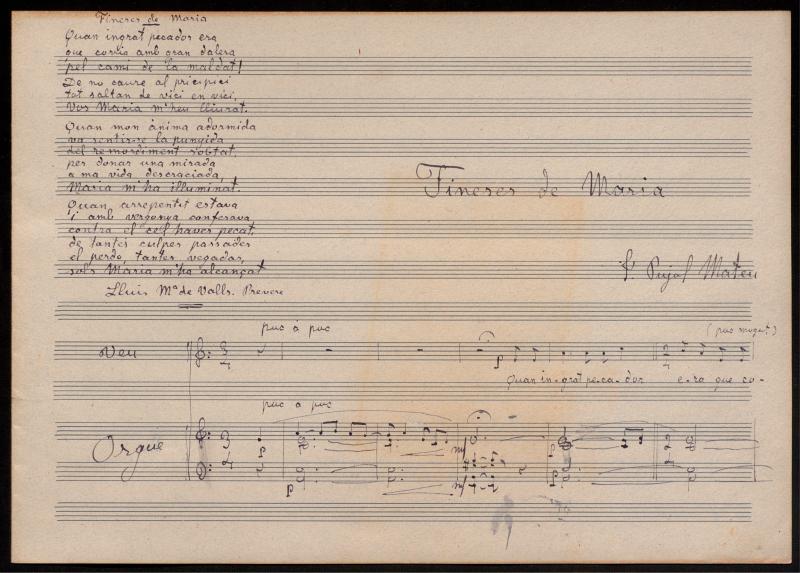 Fineses de Maria
Quan ingrat pecador era
que corria amb gran dalera
pel camí de la maldat!
De no caure al pricipici
tot saltan de vici en vici,
Vos Maria m'heu lliurat.
Quan mon ànima adormida
va sentir-se la punyida
del remordiment sobtat,
per donar una mirada
a ma vida descraciada,
Maria m'ha illuminat.
Quan, arrepentit estava
i amb vergonya confesava
contra el cel haver pecat,
de tantes culpes passades
el perdó, tantes vegades,
sols Maria m'ha alcançat
Lluis Mª de Valls. Prevere
Fineses de Maria
F. Pujol Mateu
poc a poc
(poc mogut)
Veu
p
Quan in-grat pe-ca-dor e-ra que co-
poc a poc
Orgue
p
mf
p
p
mf
p